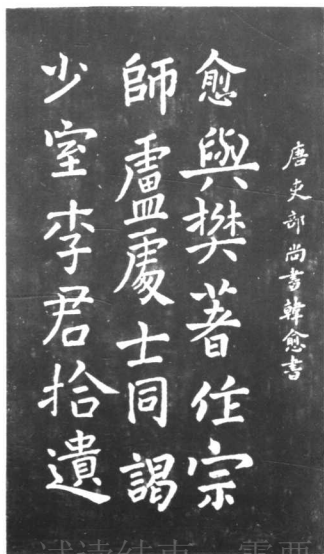 唐吏部尚書韓愈書
愈與樊著作宗
師盧處士同謁
少室李君拾遺